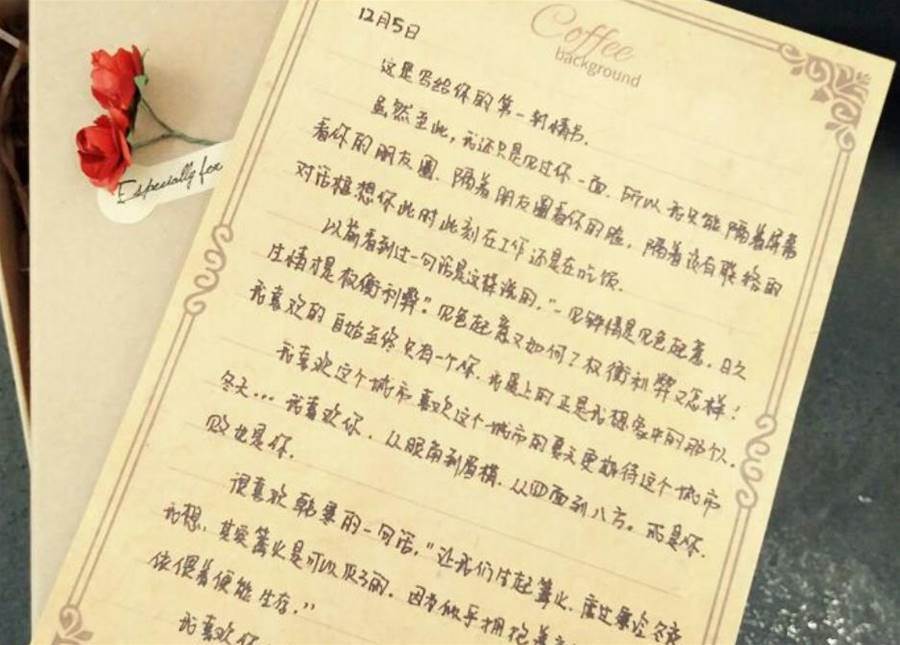 Coffee
background
Especially for
12月5日
这是写给你的第一封情书.
虽然至此,我还只是见过你一面.所以我只能隔着屏幕
看你的朋友圈.隔着朋友圈看你的脸,隔着没有联络的
对话框想你此时此刻在工作还是在吃饭.
以前看到过一句话是这样说的,"一见钟情是见色起意,日久
生情才是权衡利弊".见色起意又如何?权衡利弊又怎样!
我喜欢的自始至终只有一个你.我遇上的正是我想象中的那个人.
我喜欢这个城市喜欢这个城市的夏天更期待这个城市
冬天...我喜欢你.从眼角到眉梢.从四面到八方。而是你.
败也是你.
很喜欢韩寒的一句话,"让我们生起篝火.度过寒冷冬夜
我想,其实篝火是可以灭了的.因为似乎拥抱着
依偎着便能生存."
我喜欢你